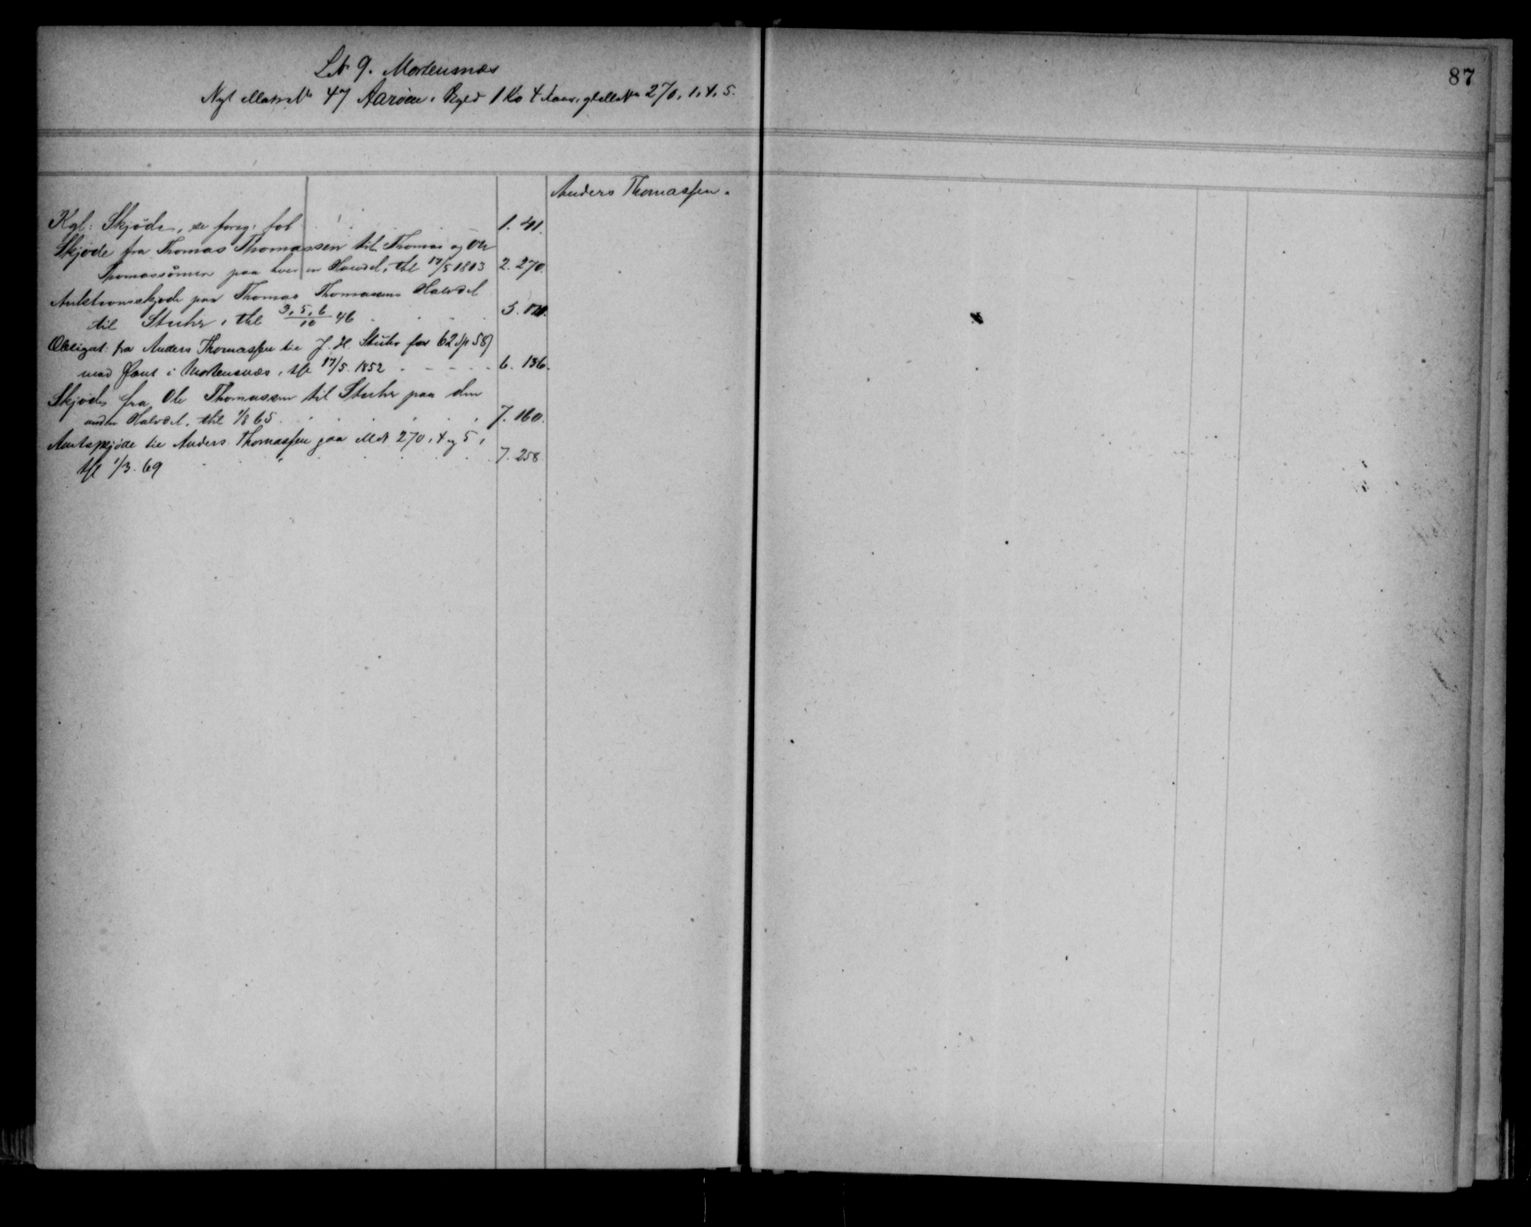 87
Lit 9. Mortensnæs
Nyt Matr No 47 Aarøen, Bygd 1 Ko 4, gl No 270, 1, 4, 5.
Anders Thomassen.
Kgl: Skjøde, se forrig: fol 1. 41.
Skjøde fra Thomas Thomassen til Thomas og Ole
Thomassønner paa hver en Halvdel, thl 17/5 1813 2. 270.
Auktionsskjøde paa Thomas Thomasens Halvdel
til Stuhr, thl 3, 5, 6/10 46 5.
Obligat: fra Anders Thomassen til J. H Stuhr for 62 Sp 58
med Pant i Mortensnæs, thl 17/5. 1852 6. 136.
Skjøde fra Ole Thomassen til Stuhr paa den
anden Halvdel, thl 1/8 65 7. 160.
Amtsskjøde til Anders Thomassen paa M 270, 4 og 5,
thl 1/3. 69 7. 258